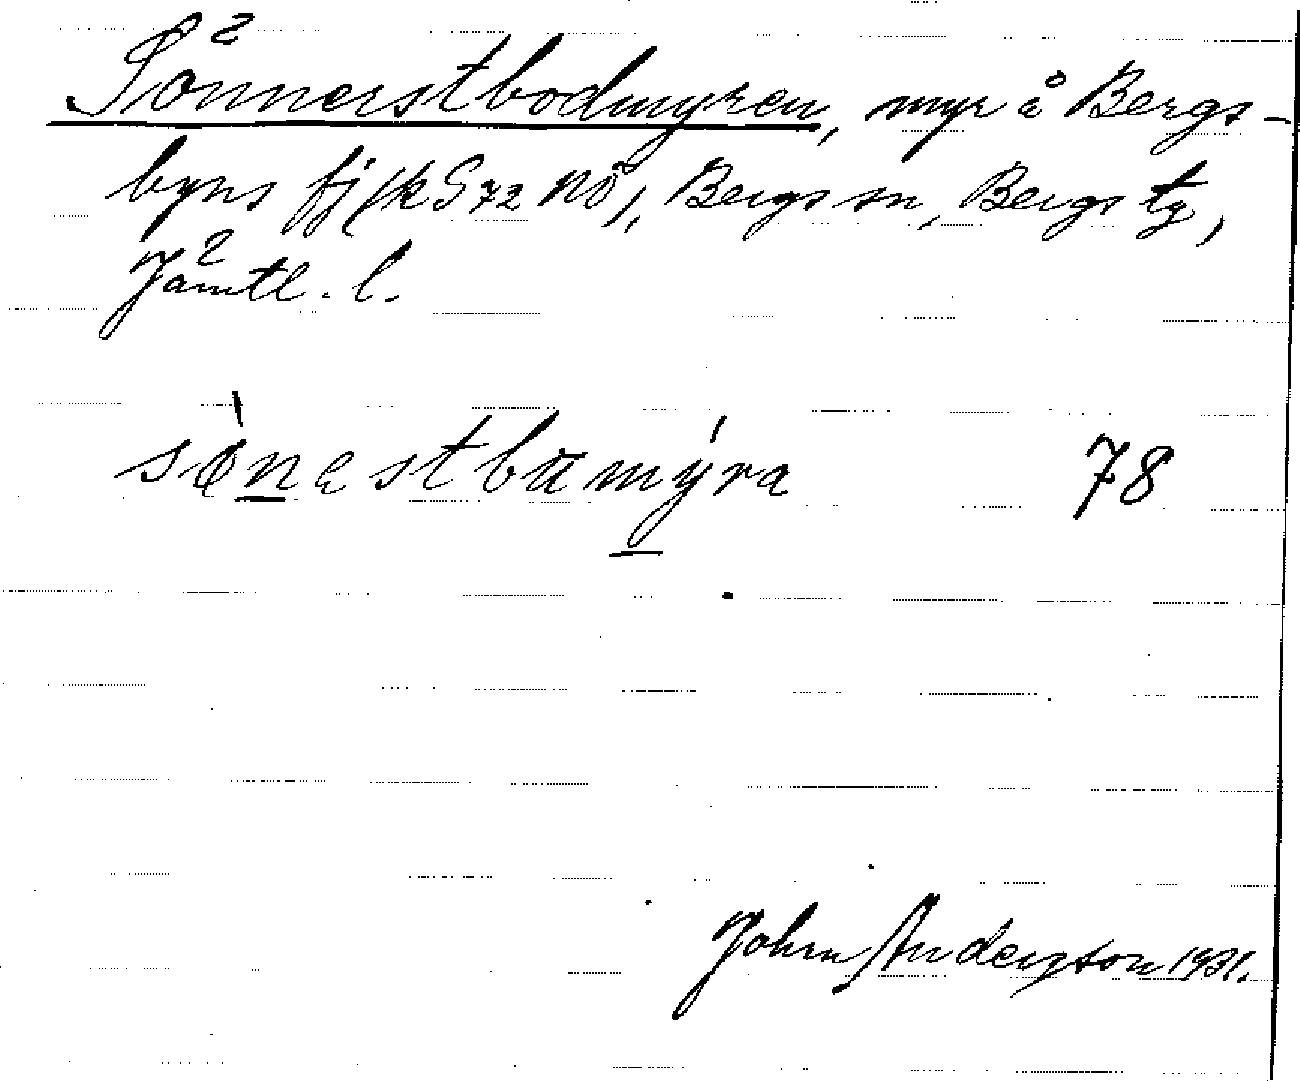 Sönnerstbodmyren, myr å Bergs-
byns fj (k S 72 NÖ), Bergs sn, Bergs tg,
Jämtl. l.
sø̀nest bu mýra 78
John Anderson 1931.